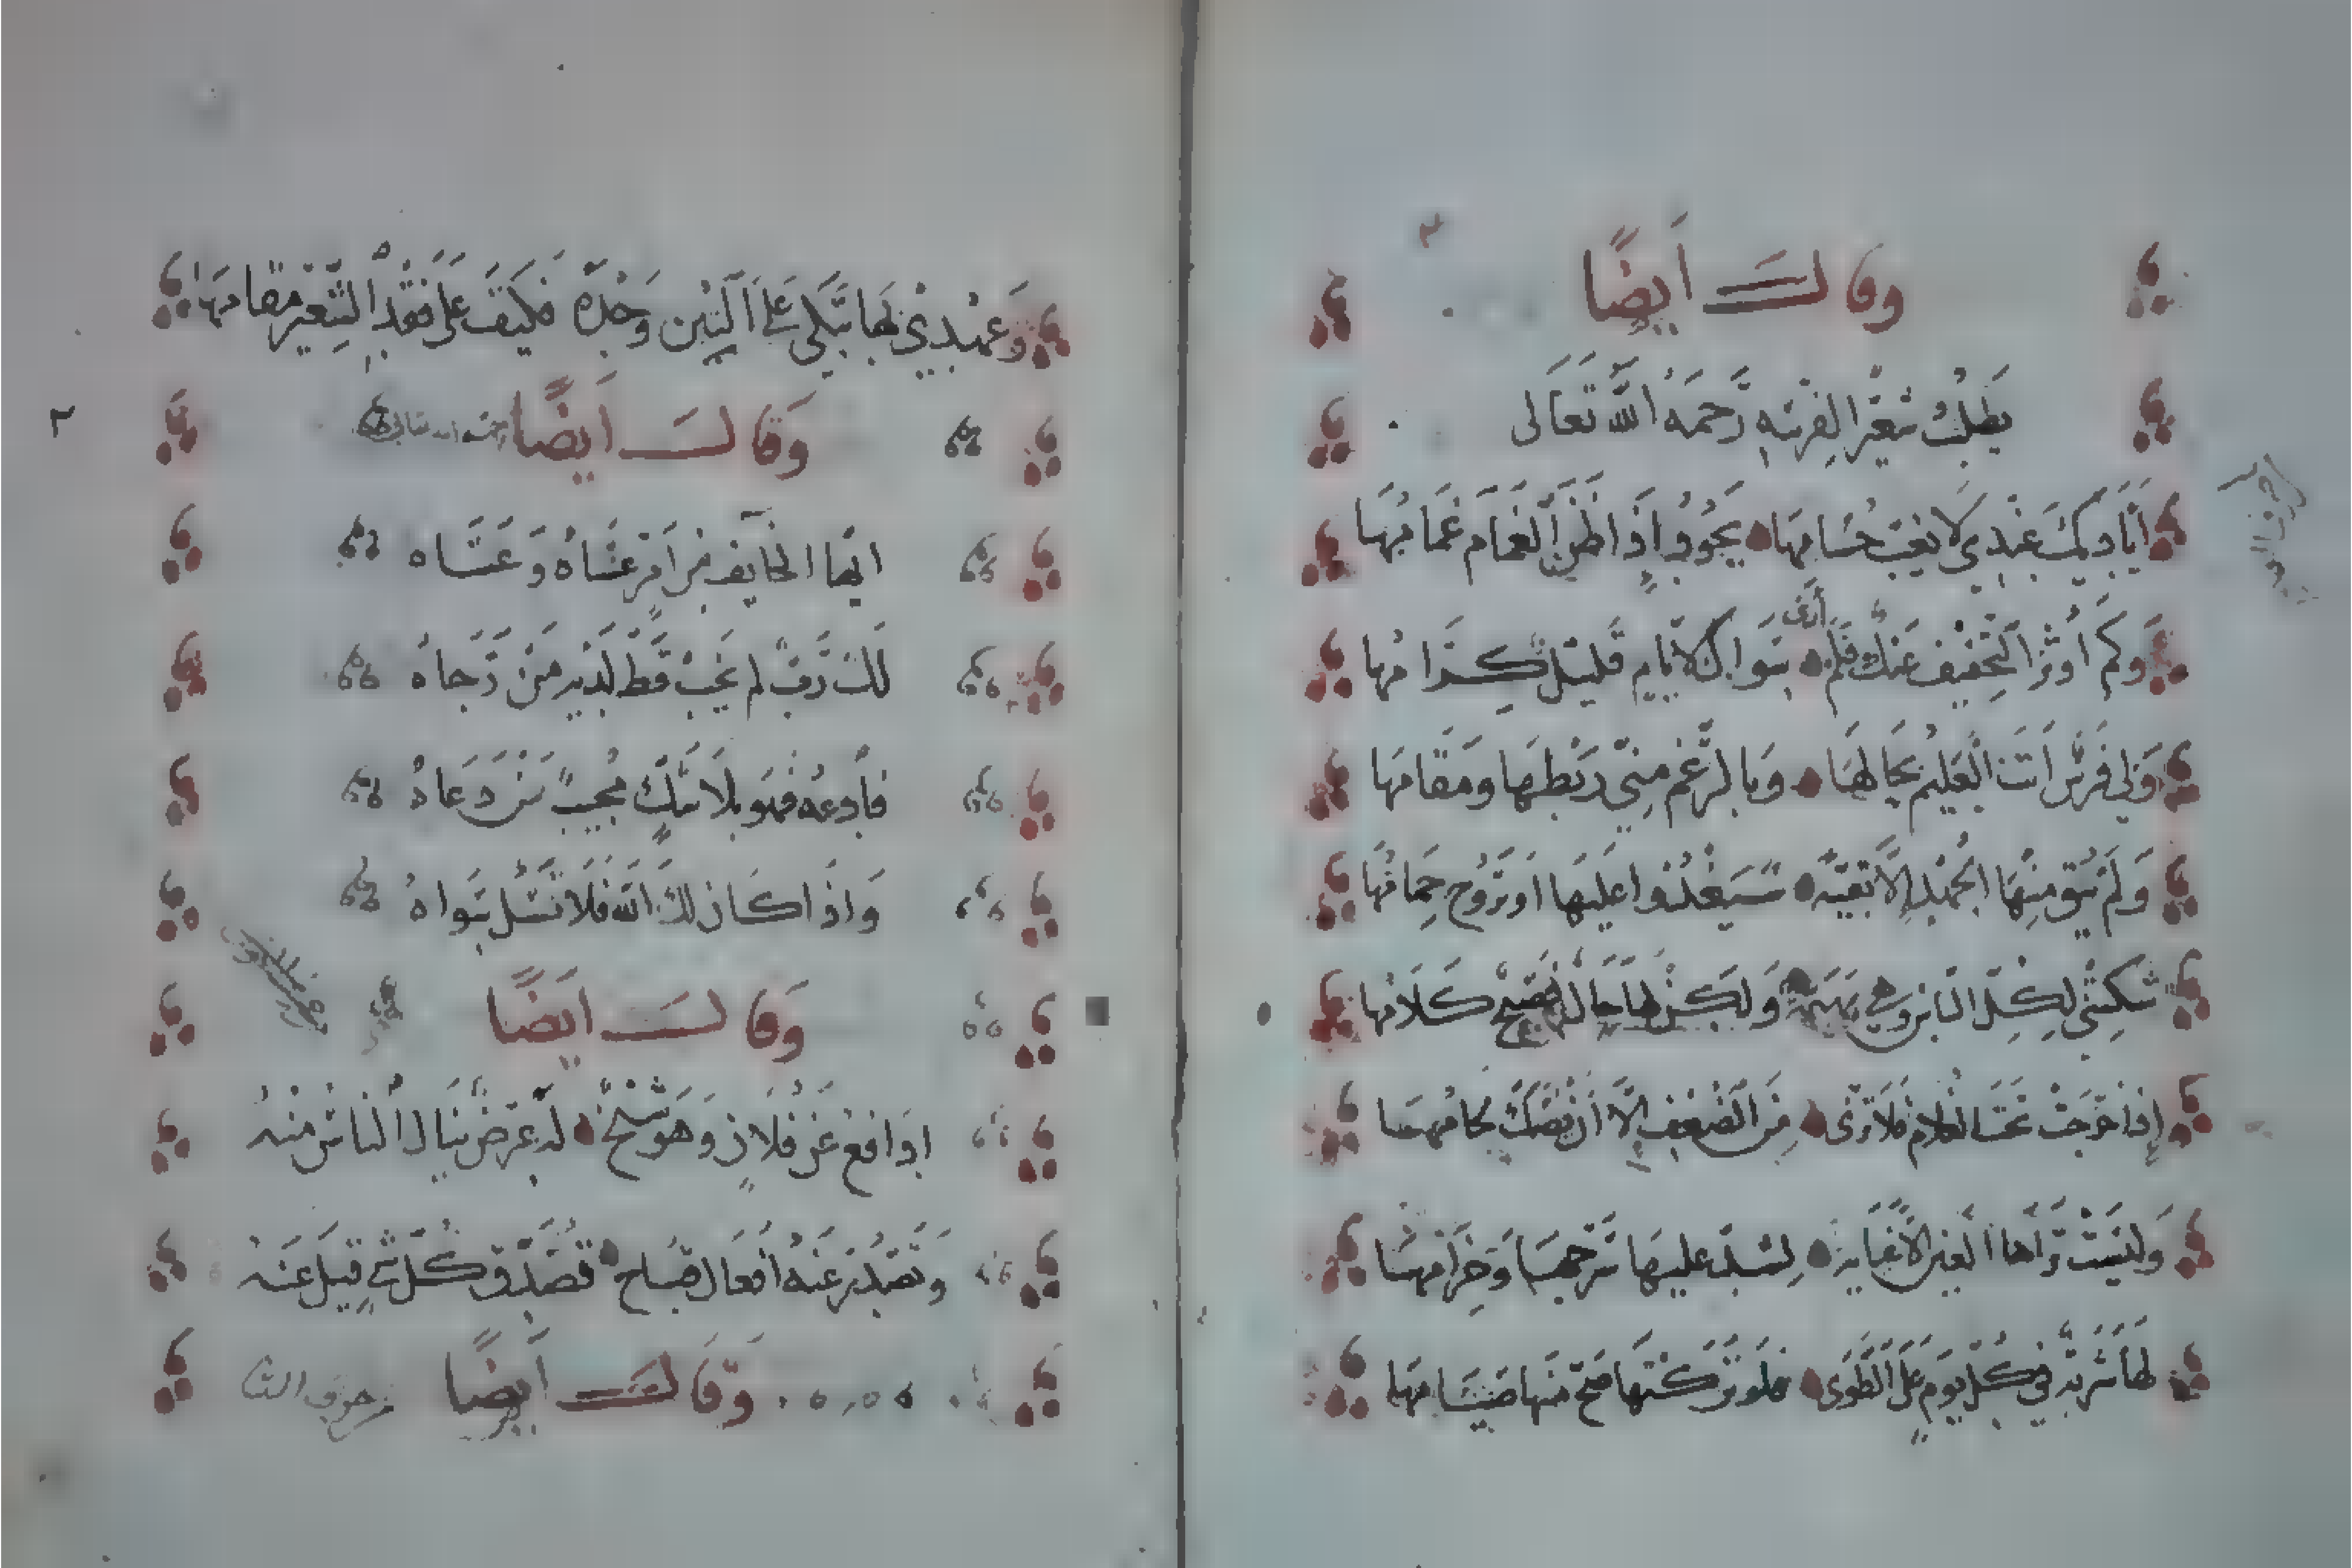 وقال أيضًا
يَطلبُ شعيرًا لفرسه رَّحمَهُ اللَّه تَعَالَى
أَيَاديكَ عندِي لا يغبّ حُسَامهَا يجُودُ إذَا ظنّ الغمام غمَامُهَا
وَكم أوثر التخفيف عَنكَ فلم أرى سِوَاك لأيام قليل كرامُها
وَلي فرَسٌ أنتَ العَليم بحَالهَا وَبالرَّغم منّي رَبْطهَا ومُقامهَا
وَلم يُبق منهَا الجهْد إلَّا بَقيّه سَيَغدُوا عليهَا أو يَروح حِمامُهَا
شكتني لكل الناس وهي بهيمَة وَلكن لها حَال فَصيح كلامُها
إذا خرَجتْ تحت الظلام فلا ترى مِنَ الضعف إلَّا أن يصكّ لجامُهَا
وَليسَتْ تَراهَا العين إلَّا عباية لِسَدّ عليها سرْجهَا وَحزَامهَا
لهَا شَربة في كلّ يوم عَلَى الطَّوى فلو تركتها صحّ منها صيَامهَا
وَعهْدِي بهَا تَبكي عَلَى التبن وَحْدَهُ فكيفَ على فَقد الشَّعير مقامهَا
٢
وَقَالَ أَيضًا رحمه الله تعالى
أيّها الخايف من أمر عَناه وَعَسَاه
لك رَبّ لم يَخبْ قطّ لدَيه مَنْ رَجاهُ
فأدعه فهو بلَا شكّ مُجيبٌ مَنْ دَعَاهُ
وَاذَا كَانَ لك الله فَلا تسْأل سِوَاهُ
وَقَالَ أيضًا
ادَافع عَنْ فلَان وَهو شيْخٌ له عِرْض ينَال النَاسُ منْهُ
وَتصْدُرَ عَنْهُ أفعَال قبَاح تُصَدّق كُلّ شي قيلَ عَنْهُ
وَقَالَ أيضًا